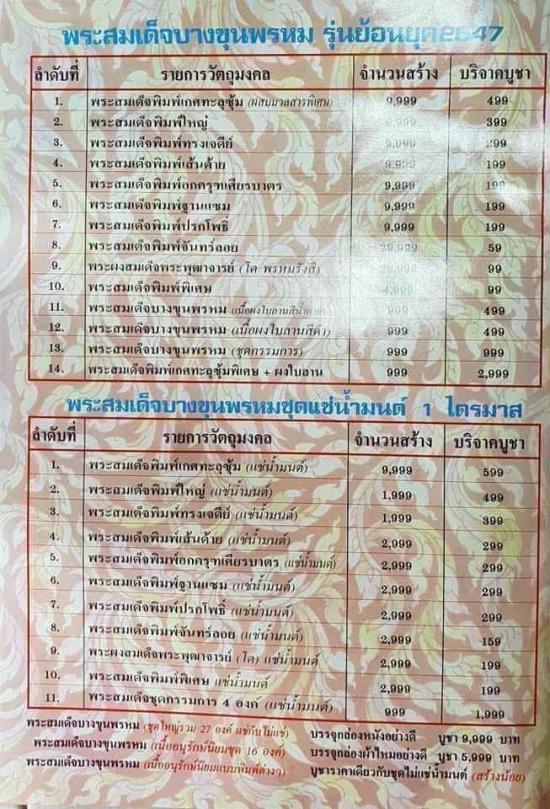 พระสมเด็จบางขุนพรหม รุ่นย้อนยุค2547
ลำดับที่ รายการวัตถุมงคล จำนวนสร้าง บริจาคบูชา
1. พระสมเด็จพิมพ์เกศทะลุซุ้ม (ผสมมวลสารพิเศษ) 9,999 499
2. พระสมเด็จพิมพ์ใหญ่ 9,999 399
3. พระสมเด็จพิมพ์ทรงเจดีย์ 9,999 299
4. พระสมเด็จพิมพ์เส้นด้าย 9,999 199
5. พระสมเด็จพิมพ์อกครุฑเศียรบาตร 9,999 199
6. พระสมเด็จพิมพ์ฐานแซม 9,999 199
7. พระสมเด็จพิมพ์ปรกโพธิ์ 9,999 199
8. พระสมเด็จพิมพ์จันทร์ลอย 29,999 59
9. พระผงสมเด็จพระพุฒาจารย์ (โต พรหมรังสี) 99
10. พระสมเด็จพิมพ์พิเศษ 4,999 99
11. พระสมเด็จบางขุนพรหม (เนื้อผงใบลานสีน้ำตาล) 999 499
12. พระสมเด็จบางขุนพรหม (เนื้อผงใบลานสีดำ) 999 499
13. พระสมเด็จบางขุนพรหม (ชุดกรรมการ) 999 999
14. พระสมเด็จพิมพ์เกศทะลุซุ้มพิเศษ + ผงใบลาน 999 2,999
พระสมเด็จบางขุนพรหมชุดแช่น้ำมนต์ 1 ไตรมาส
ลำดับที่ รายการวัตถุมงคล จำนวนสร้าง บริจาคบูชา
1. พระสมเด็จพิมพ์เกศทะลุซุ้ม (แช่น้ำมนต์) 9,999 599
2. พระสมเด็จพิมพ์ใหญ่ (แช่น้ำมนต์) 1,999 499
3. พระสมเด็จพิมพ์ทรงเจดีย์ (แช่น้ำมนต์) 1,999 399
4. พระสมเด็จพิมพ์เส้นด้าย (แช่น้ำมนต์) 2,999 299
5. พระสมเด็จพิมพ์อกครุฑเศียรบาตร (แช่น้ำมนต์) 2,999 299
6. พระสมเด็จพิมพ์ฐานแซม (แช่น้ำมนต์) 2,999 299
7. พระสมเด็จพิมพ์ปรกโพธิ์ (แช่น้ำมนต์) 2,999 299
8. พระสมเด็จพิมพ์จันทร์ลอย (แช่น้ำมนต์) 2,999 159
9. พระผงสมเด็จพระพุฒาจารย์ (โต) แช่น้ำมนต์ 2,999 199
10. พระสมเด็จพิมพ์พิเศษ แช่น้ำมนต์ 2,999 199
11. พระสมเด็จชุดกรรมการ 4 องค์ (แช่น้ำมนต์) 999 1,999
พระสมเด็จบางขุนพรหม (ชุดใหญ่รวม 27 องค์ แช่กับไม่แช่) บรรจุกล่องหนังอย่างดี บูชา 9,999 บาท
พระสมเด็จบางขุนพรหม (เนื้ออนุรักษ์นิยมชุด 16 องค์) บรรจุกล่องผ้าไหมอย่างดี บูชา 5,999 บาท
พระสมเด็จบางขุนพรหม (เนื้ออนุรักษ์นิยมแบบพิมพ์ต่างๆ) บูชาราคาเดียวกับชุดไม่แช่น้ำมนต์ (สร้างน้อย)